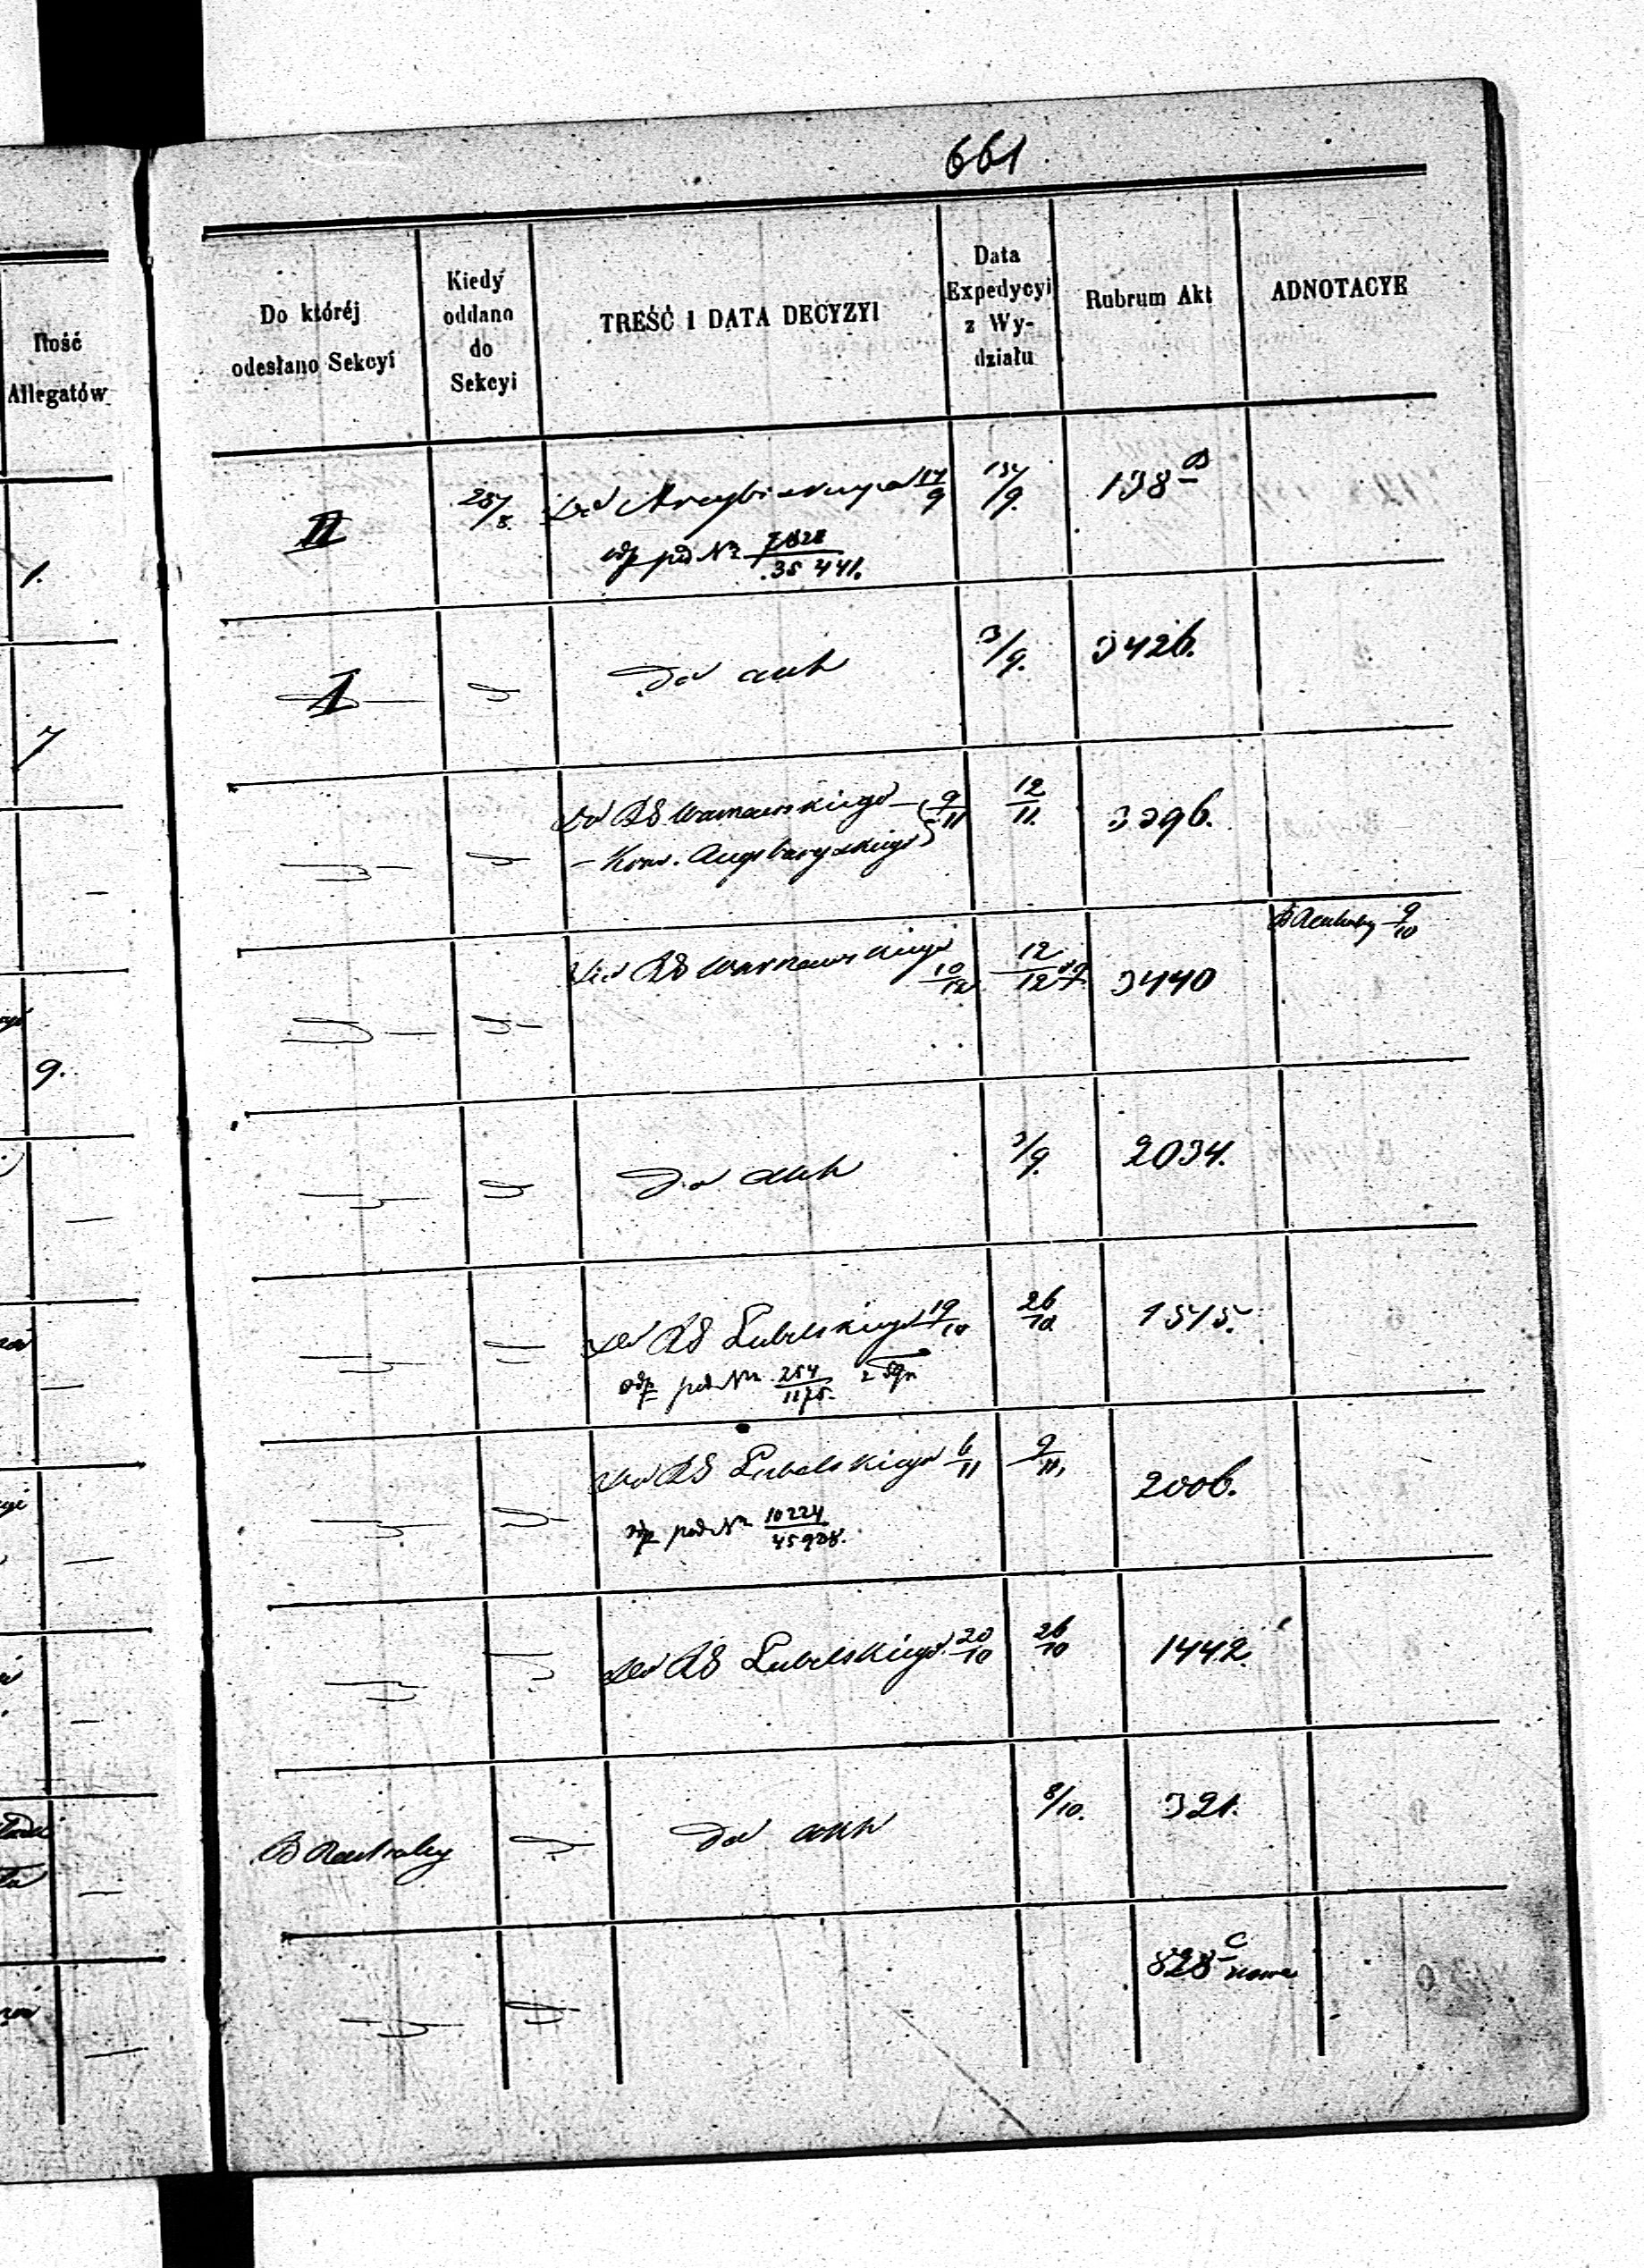 661
Ilość
Allegatów
Do któréj
odesłano Sekcyi
Kiedy
oddano
do
Sekcyi
TREŚĆ I DATA DECYZYI
Data
Expedycyi
z Wy-
działu
Rubrum Akt
ADNOTACYE
1.
II
28/8.
Do Arcybiskupa 17/9
odp pod Nr 7828/35 441.
13/9.
138 B
7
I
D
Do akt
3/9.
3426.
—
D
D
Do RG Warszawskiego — 9/11
— Kons. Augsburgskiego
12/11.
3296.
D
D
Do RG Warszawskiego
10/12
12/12
3440
B Rachuby 9/10
9.
—
D
D
Do akt
3/9.
2034.
—
D
D
Do RG Lubelskiego 19/10
odp pod Nr 254/1175.
26/10
1515.
—
D
D
Do RG Lubelskiego 6/11
odp pod Nr 10224/45908.
9/11,
2006.
—
D
D
Do RG Lubelskiego 20/10
26/10
1442.
—
B Rachuby
D
Do akt
8/10.
321.
—
D
D
828 C
nowe